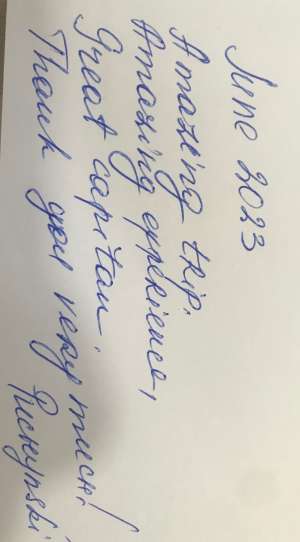 June 2023
Amazing trip.
Amazing experience,
Great capitan.
Thank you very much!